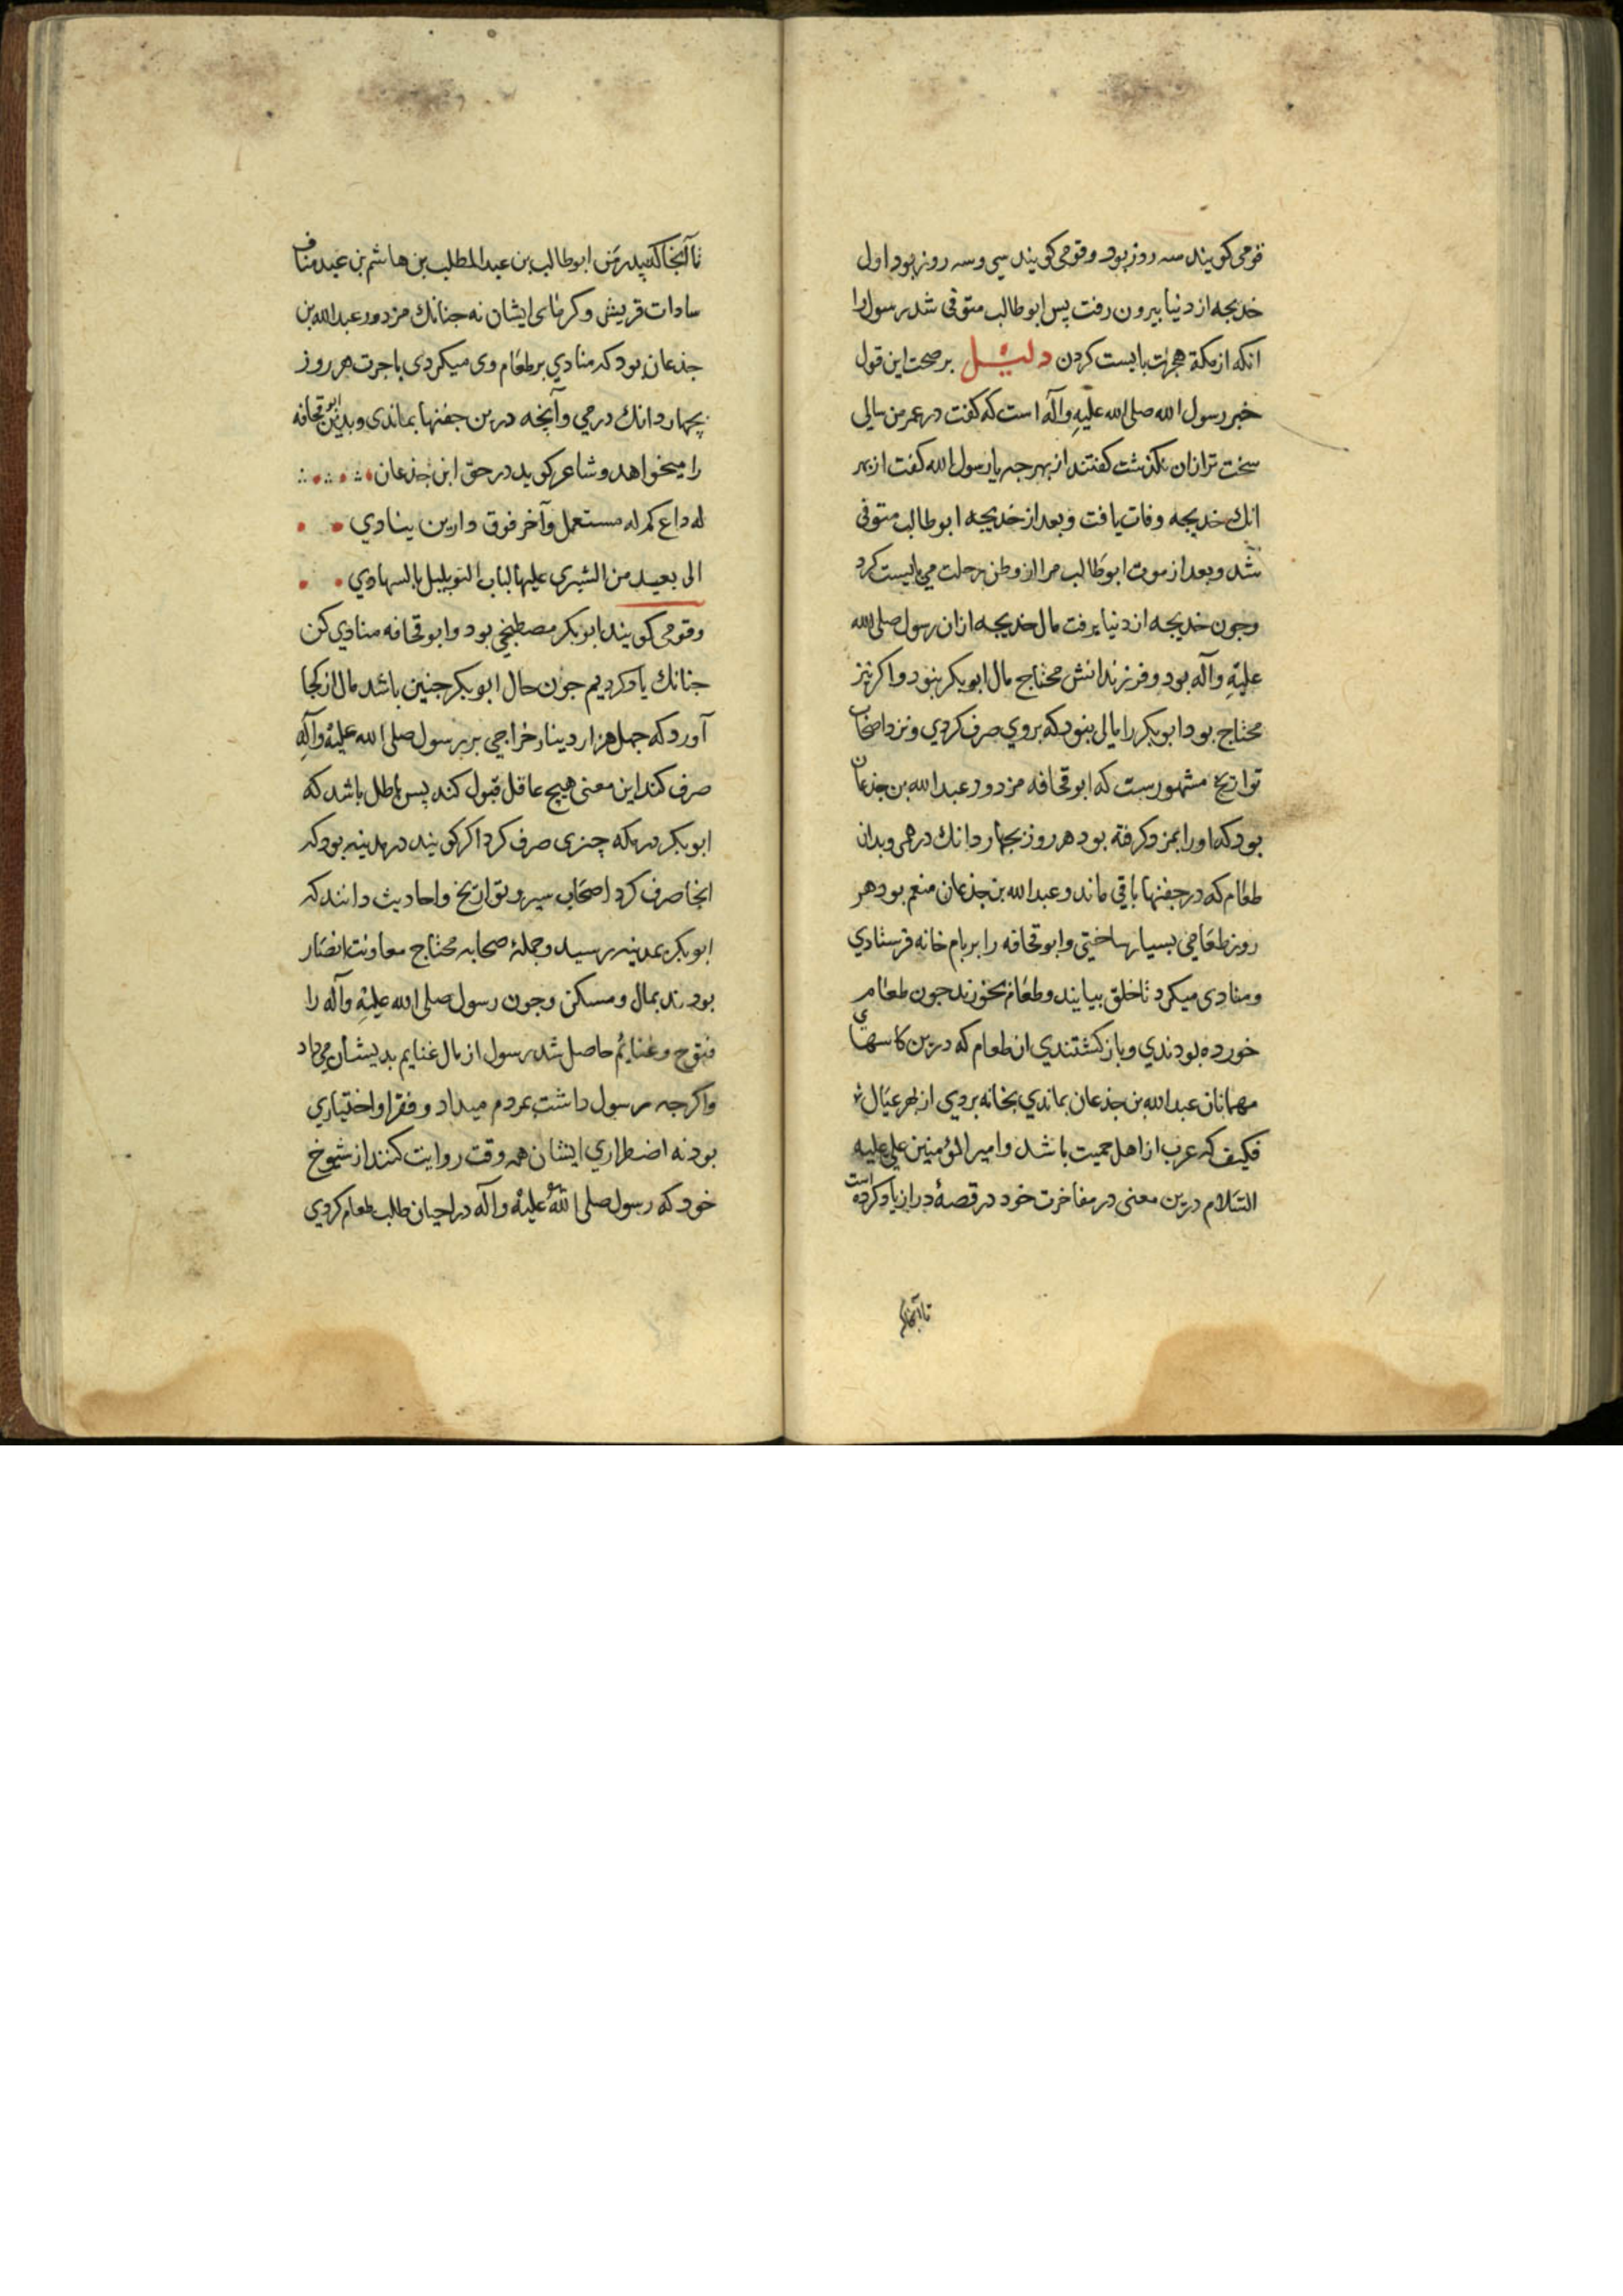 قومی کویند سه روز بود و قومی کویند سی و سه روز بود اول
خدیجه از دنیا بیرون رفت پس ابوطالب متوفی شد رسول را
انکه از مکة هجرت بایست کردن دلیل بر صحت این قول
خبر رسول الله صلی الله علیه وآله است که کفت در عمر من سالی
سخت تر ازان نکذشت کفتند از بهر چه یا رسول الله کفت از بهر
انك خدیجه وفات یافت و بعد از خدیجه ابوطالب متوفی
شد و بعد از موت ابوطالب مرا از وطن رحلت می بایست کرد
وجون خدیجه از دنیا برفت مال خدیجه ازان رسول صلی الله
علیه وآله بود و فرزندانش محتاج مال ابوبکر نبود واکر نیز
محتاج بود ابوبکر را مالی نبود که بروی صرف کردی و نزد اصحاب
تواریخ مشهورست که ابو قحافه مزدور عبدالله بن جذعان
بود که اورا بمزد کرفته بود هر روز بجهار دانك درهمی و بدان
طعام که در جفنها باقی ماند و عبدالله بن جذعان منعم بود هر
روز طعامی بسیار ساختی و ابو قحافه را بر بام خانه فرستادی
و منادی میکرد تا خلق بیایند و طعام بخورند جون طعام
خورده بودندی و باز کشتندی ان طعام که در بن کاسهای
مهمانان عبدالله بن جذعان بماندی بخانه بردی از بهر عیال
فکیف که عرب از اهل حمیت باشد و امیر المؤمنین علی علیه
السلام درین معنی در مفاخرت خود در قصهٔ دراز یاد کرده است
تا آنجا که
تا آنجا که پدر من ابوطالب بن عبدالمطلب بن هاشم بن عبد مناف
سادات قریش و کرمای ایشان نه جنانك مزدور عبدالله بن
جذعان بود که منادی بر طعام وی میکردی باجرت هر روز
بجهار دانك درمی و آنچه در بن جفنها بماندی و بدین ابو قحافه
را میخواهد و شاعر کوید در حق ابن جذعان
له داع بمکه مستعمل وآخر فوق دارین ینادی
الی بعید من الشیزی علیها لباب البر یلبك بالسهادی
و قومی کویند ابوبکر مصطبخی بود و ابو قحافه منادی کن
جنانك یاد کردیم جون حال ابوبکر جنین باشد مال از کجا
آورد که جهل هزار دینار خراجی بر رسول صلی الله علیه وآله
صرف کند این معنی هیچ عاقل قبول کند پس باطل باشد که
ابوبکر در مکه چیزی صرف کرد اکر کویند در مدینه بود که
انجا صرف کرد اصحاب سیر و تواریخ و احادیث دانند که
ابوبکر بمدینه رسید و جملهٔ صحابه محتاج معاونت انصار
بودند بمال و مسکن و جون رسول صلی الله علیه وآله را
فتوح و غنایم حاصل شد رسول از مال غنایم بدیشان می داد
واکرجه رسول داشت بمردم میداد و فقر او اختیاری
بود نه اضطراری ایشان همه وقت روایت کنند از شیوخ
خود که رسول صلی الله علیه وآله در احیان طلب طعام کردی